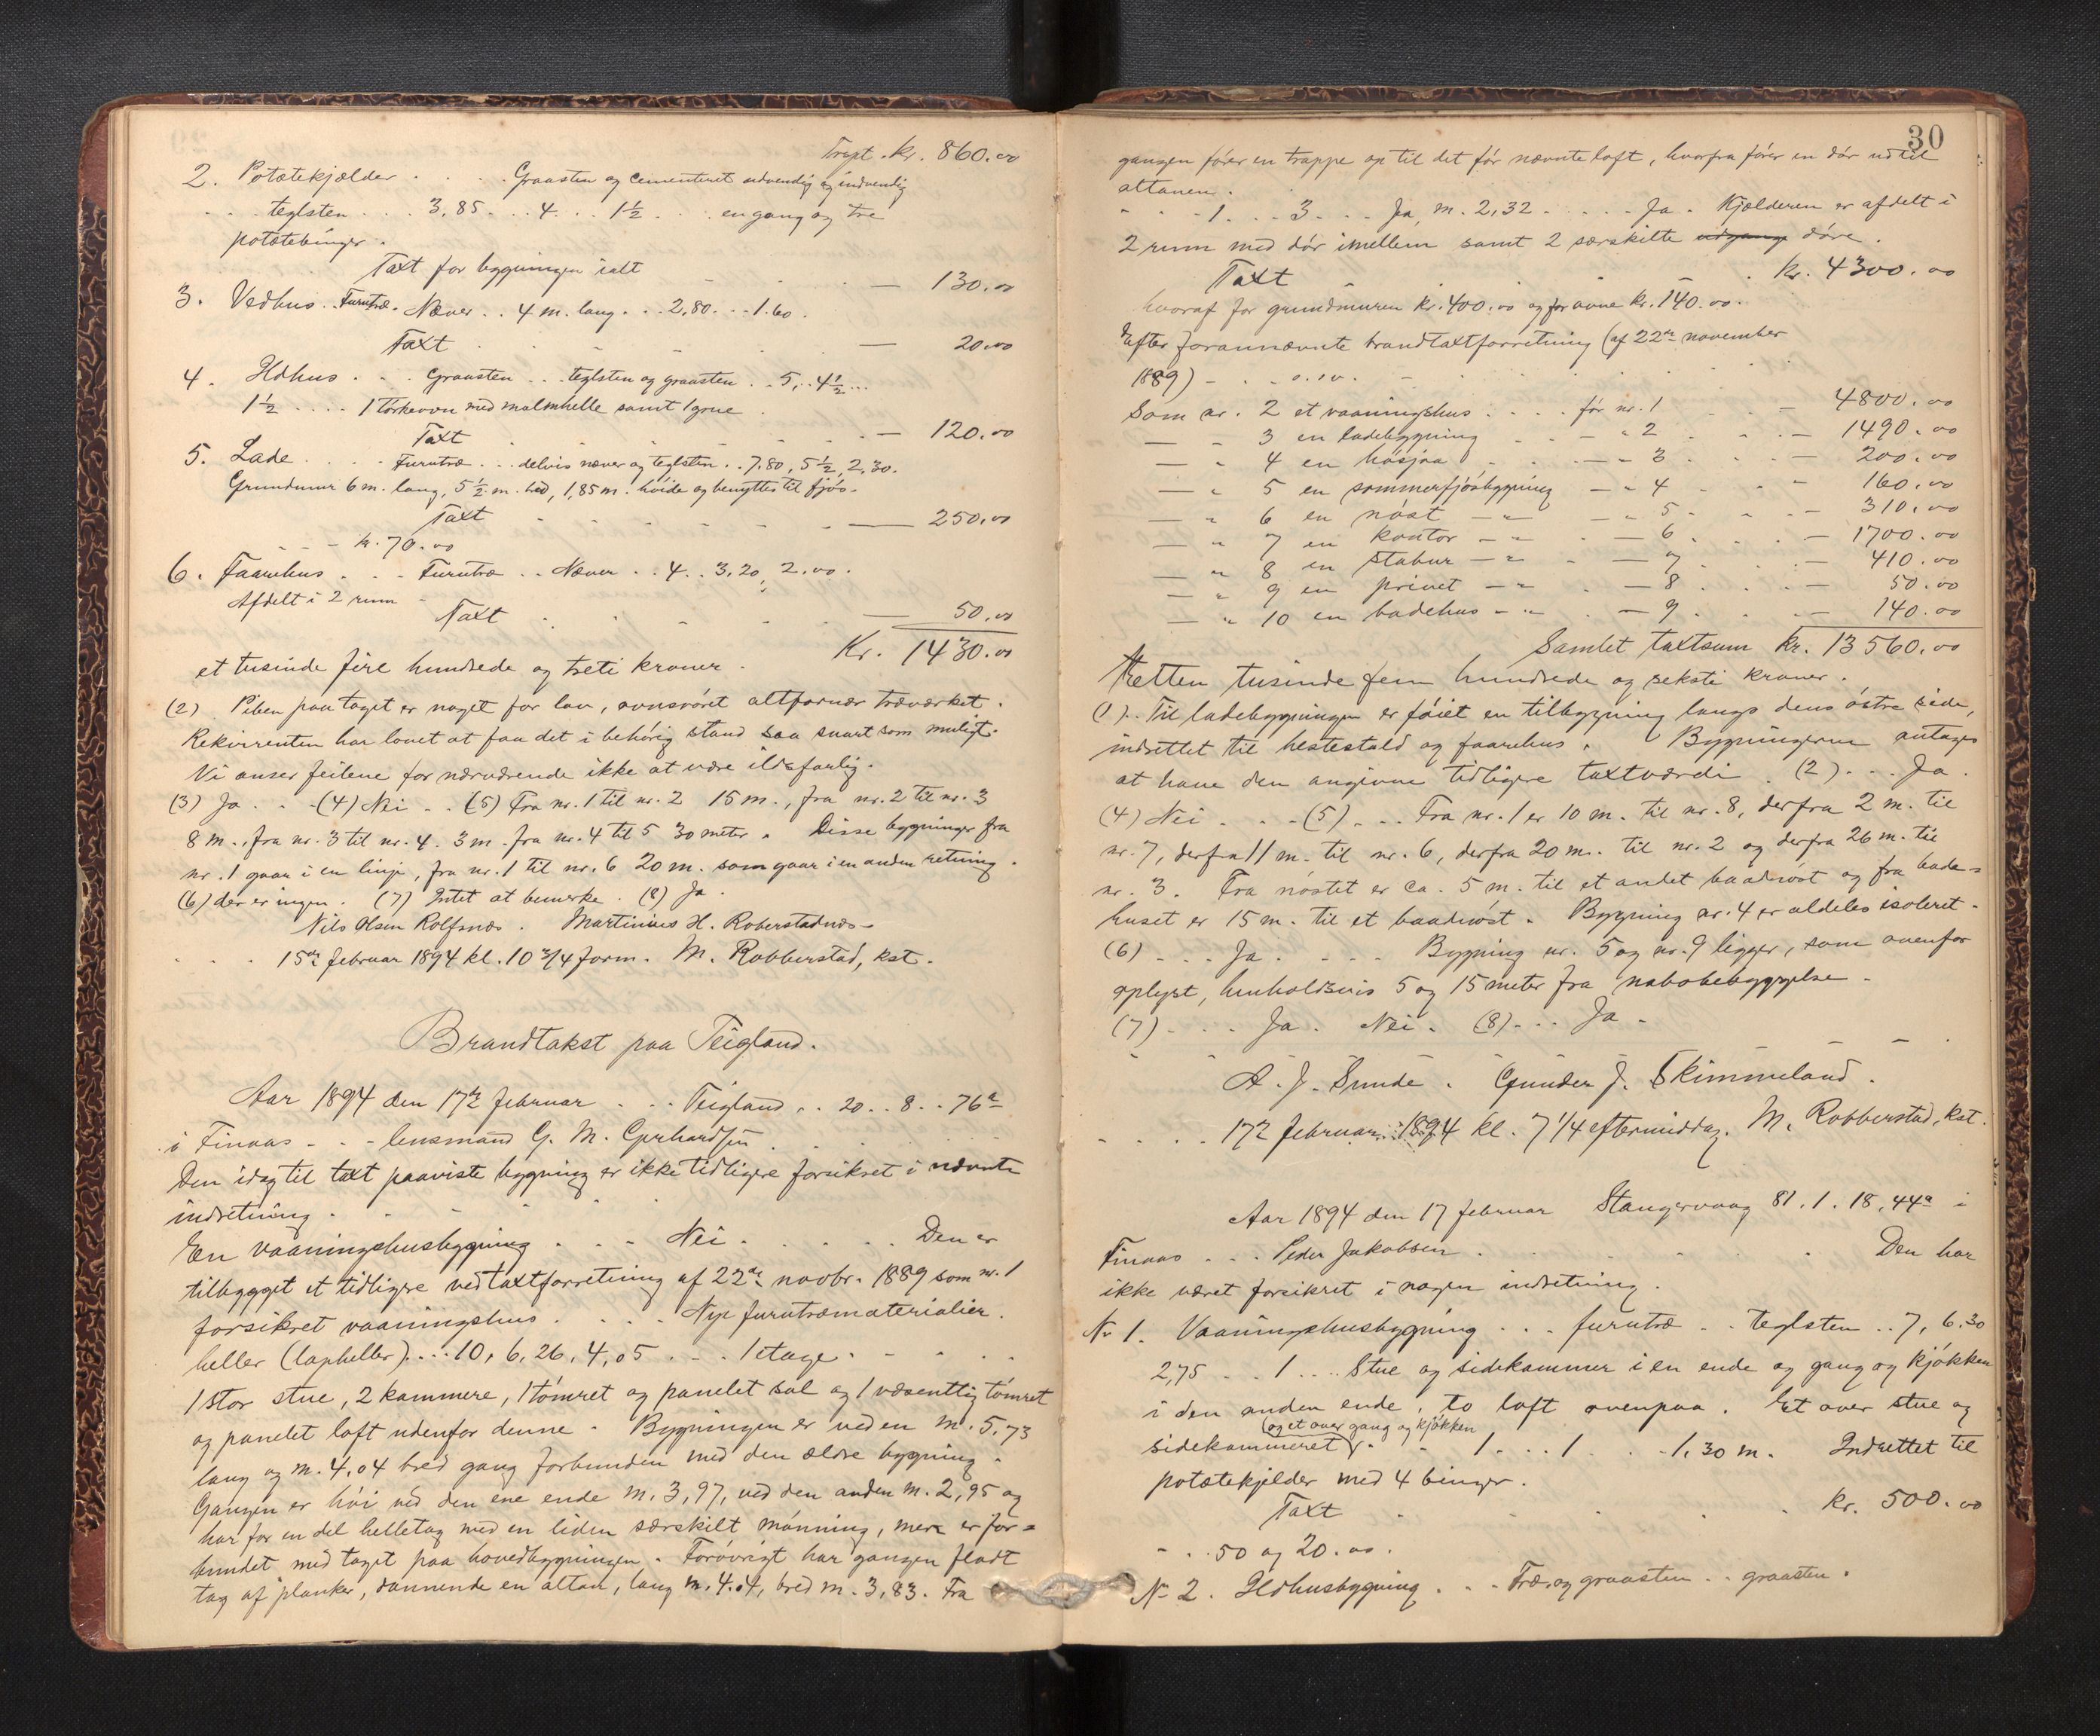 Trspt. kr. 860.00
2. Potætekjælder . . . . Graasten og cementeret udvendig og indvendig
. . . teglsten . . . 3,85 . . 4 . . 1½ . . . en gang og tre
potætebinger.
Taxt for bygningen ialt — 130.00
3. Vedhus . . Furutræ . Næver . . 4 m. lang . . 2,80 . . 1.60 .
Taxt — 20.00
4. Ildhus . . . Graasten . . teglsten og graasten . . 5, . 4½ . .
1½ . . . . 1 Tørkeovn med malmhelle samt 1 grue .
Taxt — 120.00
5. Lade . . . . Furutræ . . . delvis næver og teglsten . . 7,80, 5½, 2,30.
Grundmur 6 m. lang, 5½ m. bred, 1,85 m. høide og benyttes til fjøs.
Taxt — 250.00
. . - kr. 70.00
6. Faarehus . . . Furutræ . . Næver . . 4 . . 3,20, 2.00 .
Afdelt i 2 rum -
Taxt — 50.00
Kr. 1430.00
et tusinde fire hundrede og treti kroner .
(2) Piben paa taget er noget for lav, ovnsrøret altfornær træværket .
Rekvirenten har lovet at faa det i behørig stand saa snart som muligt.
Vi anser feilene for nærværende ikke at være ildsfarlig.
(3) Ja . . - (4) Nei . . (5) Fra nr. 1 til nr. 2 15 m., fra nr. 2 til nr. 3
8 m., fra nr. 3 til nr. 4. 3 m. fra nr. 4 til 5 30 meter . Disse bygninger fra
nr. 1 gaar i en linje, fra nr. 1 til nr. 6 20 m. som gaar i en anden retning .
(6) der er ingen . (7) Intet at bemerke . (8) Ja .
Nils Olsen Rolfsnæs . Martinius H. Roberstadnæs -
. . . 15de februar 1894 kl. 10 3/4 form. M. Robberstad, kst.
Brandtakst paa Teigland.
Aar 1894 den 17de februar . . . Teigland . . 20 . . 8 . . 76 a
i Finaas - . - lensmand G. M. Gerhardsen
Den idag til taxt paaviste bygning er ikke tidligere forsikret i nævnte
indretning .
En vaaningshusbygning . . - Nei . . . . . . Den er
tilbygget et tidligere ved taxtforretning af 22de novbr. 1889 som nr. 1
forsikret vaaningshus . . . . Nye furutræmaterialier.
heller (lapheller) . . . . 10, 6,26, 4,05 . . . 1 etage .
1 stor stue, 2 kammere, 1 tømret og panelet sal og 1 væsentlig tømret
og panelet loft udenfor denne . Bygningen er ved en m. 5,73
lang og m. 4,04 bred gang forbunden med den ældre bygning .
Gangen er høi ved den ene ende m. 3,97, ved den anden m. 2,95 og
har for en del helletag med en liden særskilt mønning, mere er for=
bundet med taget paa hovedbygningen . Forøvrigt har gangen fladt
tag af planker, dannende en altan, lang m. 4.04, bred m. 3,83. Fra
30
gangen fører en trappe op til det før nævnte loft, hvorfra fører en dør ud til
altanen .
- . . -1 . . . 3 . . . Ja, m. 2,32 . . . . . Ja . Kjælderen er afdelt i
2 rum med dør imellem samt 2 særskilte udgange døre .
Taxt . kr. 4300.00
hvoraf for grundmuren kr. 400.00 og for ovne kr. 140.00.
Efter forannævnte brandtaxtforretning (af 22de november
1889) - . .
Som nr. 2 et vaaningshus . . . . før nr. 1 — 4800.00
— „ 3 en ladebygning . . — „ 2 — 1490.00
— „ 4 en høsjaa . . — „ 3 — 200.00
— „ 5 en sommerfjøsbygning — „ 4 — 160.00
— „ 6 en nøst — „ — „ 5 — 310.00
— „ 7 en kontor — „ — 6 — 1700.00
— „ 8 en stabur — „ — 7 — 410.00
— „ 9 en privet — „ — 8 — 50.00
— „ 10 en badehus — „ — 9 — 140.00
Samlet taxtsum kr. 13560.00
Tretten tusinde fem hundrede og seksti kroner .
(1) . . Til ladebygningen er føiet en tilbygning langs dens østre side,
indrettet til hestestald og faarehus . Bygningerne antages
at have den angivne tidligere taxtværdi . (2) . . . Ja .
(4) Nei . . . - (5) . . . Fra nr. 1 er 10 m. til nr. 8, derfra 2 m. til
nr. 7, derfra 11 m. til nr. 6, derfra 20 m. til nr. 2 og derfra 26 m. til
nr. 3. Fra nøstet er ca. 5 m. til et andet baadnøst og fra bade=
huset er 15 m. til et baadnøst . Bygning nr. 4 er aldeles isoleret .
(6) . . . Ja . . . . . Bygning nr. 5 og nr. 9 ligger, som ovenfor
oplyst, henholdsvis 5 og 15 meter fra nabobebyggelse .
(7) . . . . Ja . Nei . (8) . . . Ja .
A. J. Sunde . Gunder J. Skimmeland .
- . . . 17de februar 1894 kl. 7 1/4 eftermiddag. M. Robberstad, kst.
Aar 1894 den 17 februar Stangervaag 81 . 1 . 18, 44 a i
Finaas . . . Peder Jakobsen . . . Den har
ikke været forsikret i nogen indretning .
No 1. Vaaningshusbygning . . . furutræ . . teglsten . . 7, 6.30
2,75 . . 1 . . . Stue og sidekammer i en ende og gang og kjøkken
i den anden ende, to loft ovenpaa . Et over stue og
(og et over gang og kjøkken
sidekammeret . . - 1 . . . 1 . . . -1,30 m . Indrettet til
potætekjelder med 4 binger .
Taxt . kr. 500.00
- . . 50 og 20.00 .
No 2 . Ildhusbygning . . - Træ og graasten . . graasten .